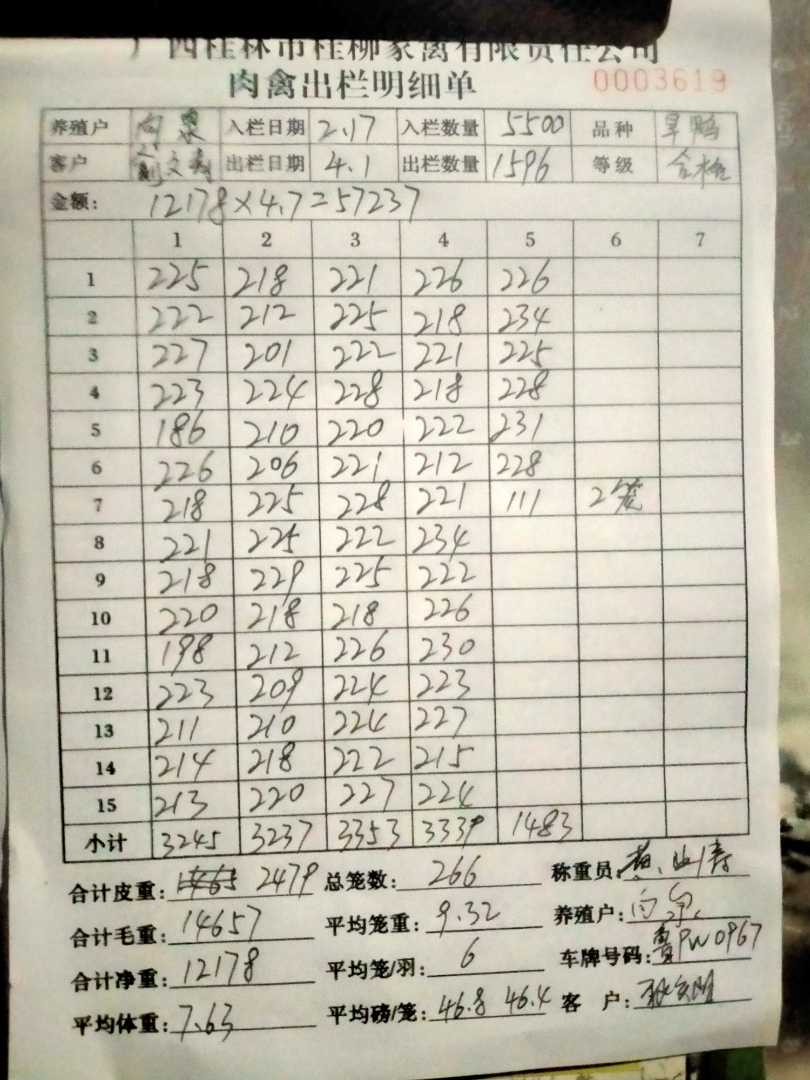 广西桂林市桂柳家禽有限责任公司
肉禽出栏明细单 0003619
养殖户 向泉 入栏日期 2.17 入栏数量 5500 品种 旱鸭
客户 出栏日期 4.1 出栏数量 1596 等级 合格
金额: 12178×4.7=57237
1 2 3 4 5 6 7
1 225 218 221 226 226
2 222 212 225 218 234
3 227 201 222 221 225
4 223 224 228 218 228
5 186 210 220 222 231
6 226 206 221 212 228
7 218 225 228 221 111 2笼
8 221 225 222 234
9 218 229 225 222
10 220 218 218 226
11 198 212 226 230
12 223 209 224 223
13 211 210 224 227
14 214 218 222 215
15 213 220 227 224
小计 3245 3237 3353 3339 1483
合计皮重: 2479 总笼数: 266 称重员:
合计毛重: 14657 平均笼重: 9.32 养殖户:
合计净重: 12178 平均笼/羽: 6 车牌号码: 鲁PW0967
平均体重: 7.63 平均磅/笼: 46.8 46.4 客户: